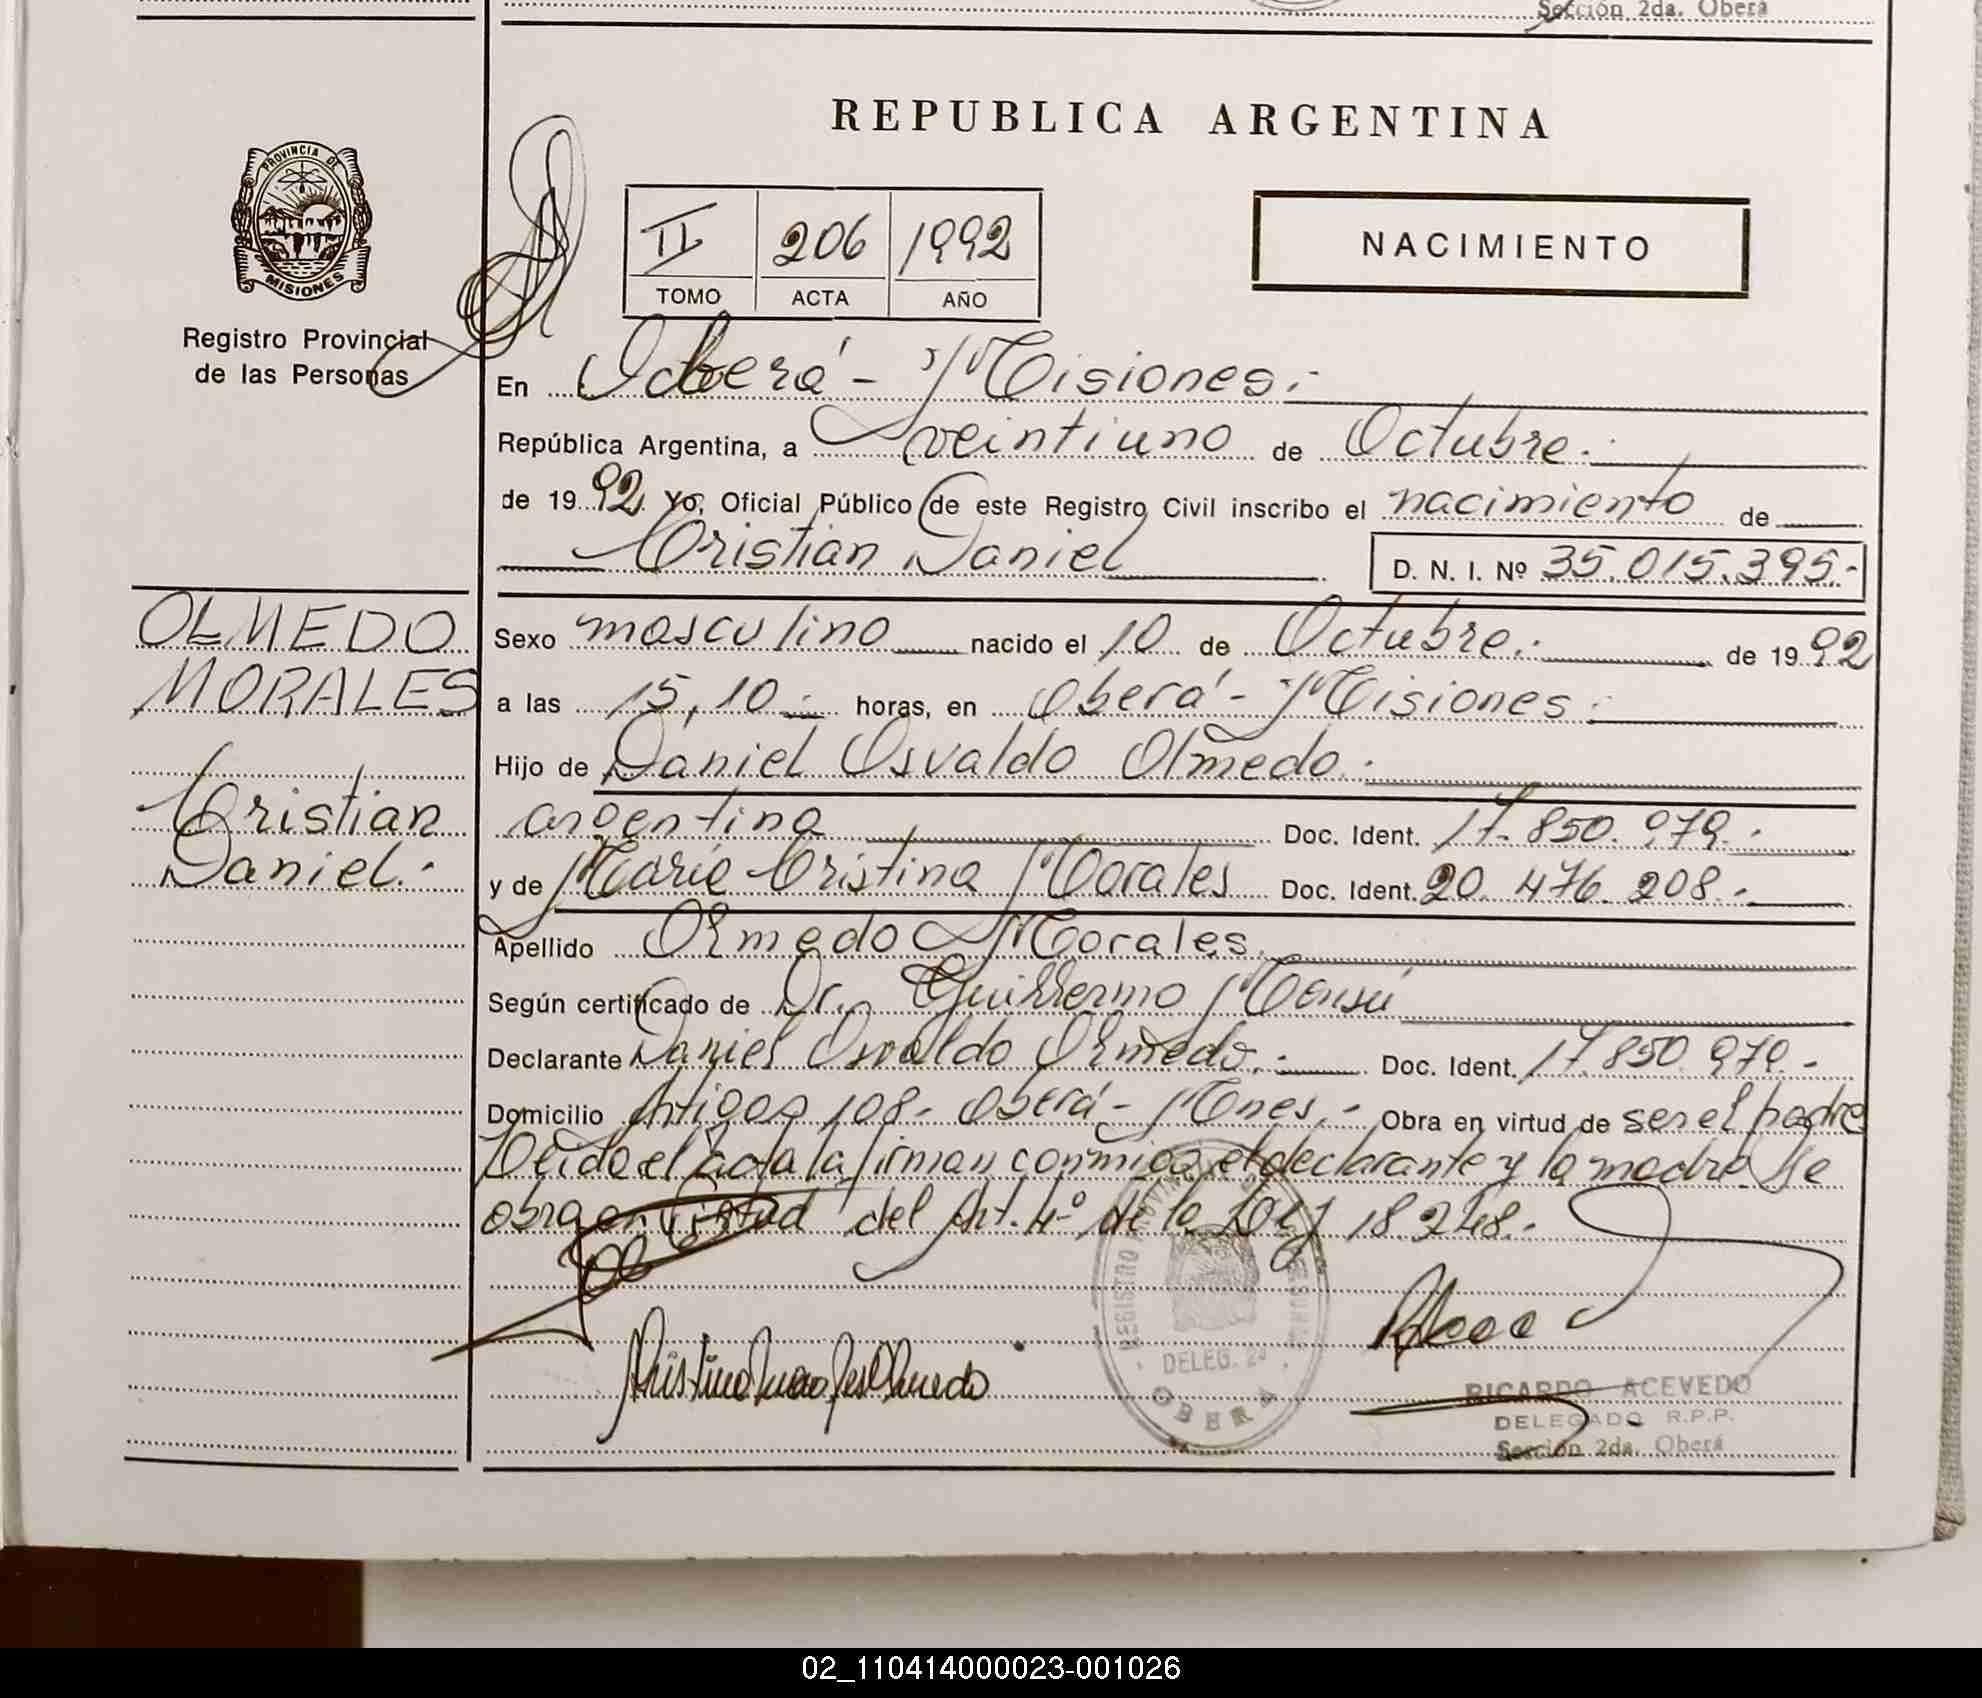 Sección 2da. Oberá
REPUBLICA ARGENTINA
PROVINCIA DE
MISIONES
Registro Provincial
de las Personas
II 206 1992
TOMO ACTA AÑO
NACIMIENTO
En Oberá - Misiones.-
República Argentina, a veintiuno de Octubre.-
de 1992. Yo, Oficial Público de este Registro Civil inscribo el nacimiento de
Cristian Daniel D. N. I. Nº 35.015.395.-
OLMEDO
MORALES
Cristian
Daniel.-
Sexo masculino nacido el 10 de Octubre.- de 1992
a las 15,10.- horas, en Oberá - Misiones.-
Hijo de Daniel Osvaldo Olmedo.-
argentina Doc. Ident. 17.850.979.-
y de María Cristina Morales Doc. Ident. 20.476.208.-
Apellido Olmedo Morales.
Según certificado de Dr. Guillermo Mensú
Declarante Daniel Osvaldo Olmedo.- Doc. Ident. 17.850.979.-
Domicilio Artigas 108.- Oberá - Mnes.- Obra en virtud de ser el padre
Leída el acta la firman conmigo el declarante y la madre. Se
obra en virtud del Art. 4º de la Ley 18.248.-
REGISTRO PROVINCIAL
DELEG. 2a.
OBERA
Cristina Morales Olmedo
RICARDO ACEVEDO
DELEGADO R.P.P.
Sección 2da. Oberá
02_110414000023-001026